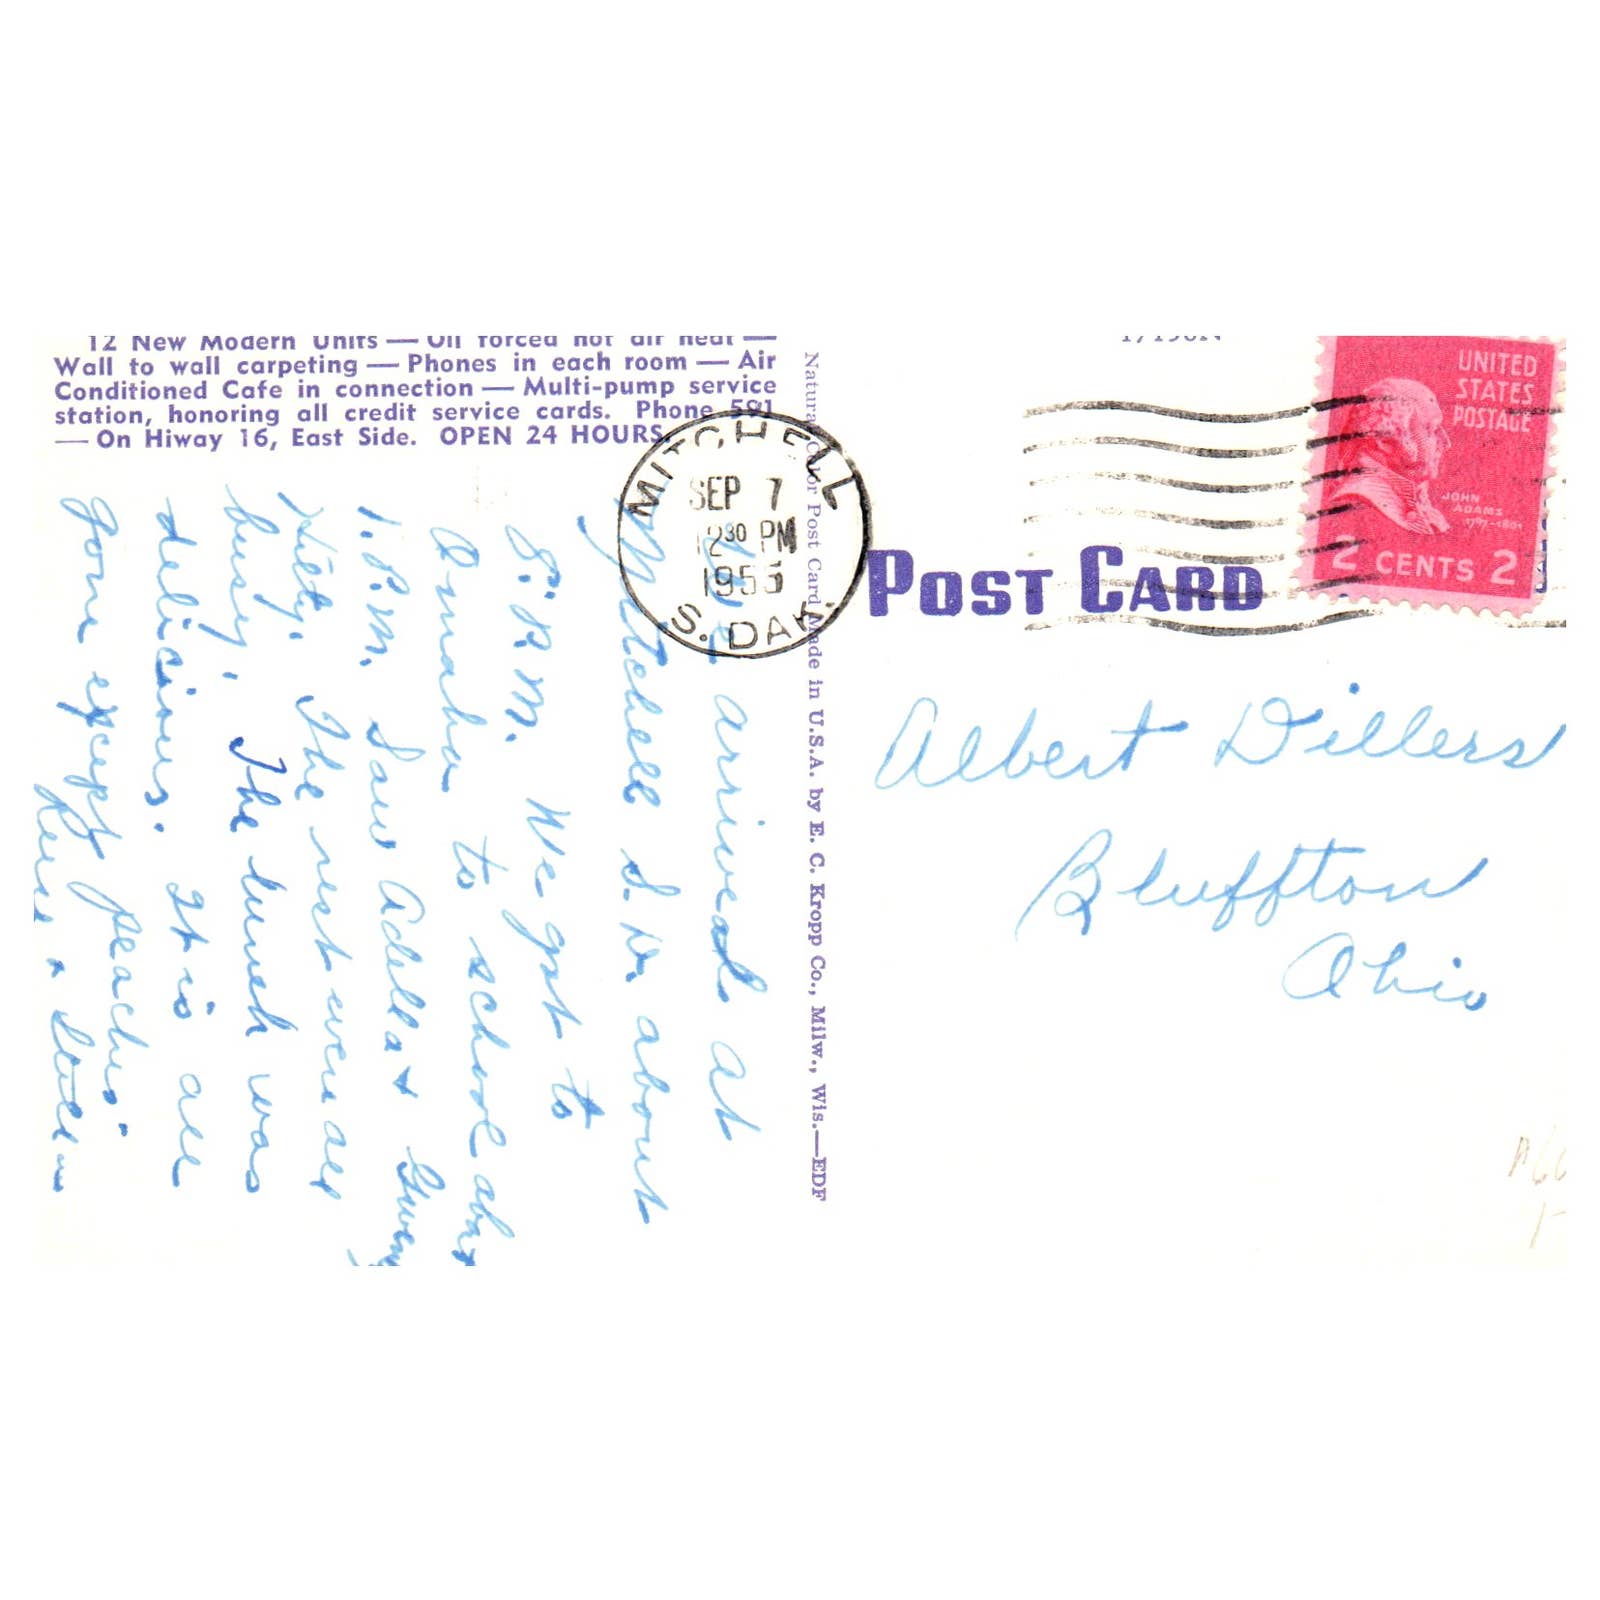 12 New Modern Units — Oil forced hot air heat —
Wall to wall carpeting — Phones in each room — Air
Conditioned Cafe in connection — Multi-pump service
station, honoring all credit service cards. Phone 591
— On Hiway 16, East Side. OPEN 24 HOURS.
We arrived at
Mitchell S. D. about
5. P.M. We got to
Omaha to school abt
1. P.M. Saw Adella + Gweny
Hilty. The rest were all
busy. The lunch was
delicious. It is all
gone except peaches.
Natural Color Post Card Made in U.S.A. by E. C. Kropp Co., Milw., Wis.—EDF
MITCHELL
SEP 7
12 30 PM
1955
S. DAK.
UNITED
STATES
POSTAGE
JOHN
ADAMS
1797-1801
2 CENTS 2
POST CARD
Albert Dillers
Bluffton
Ohio